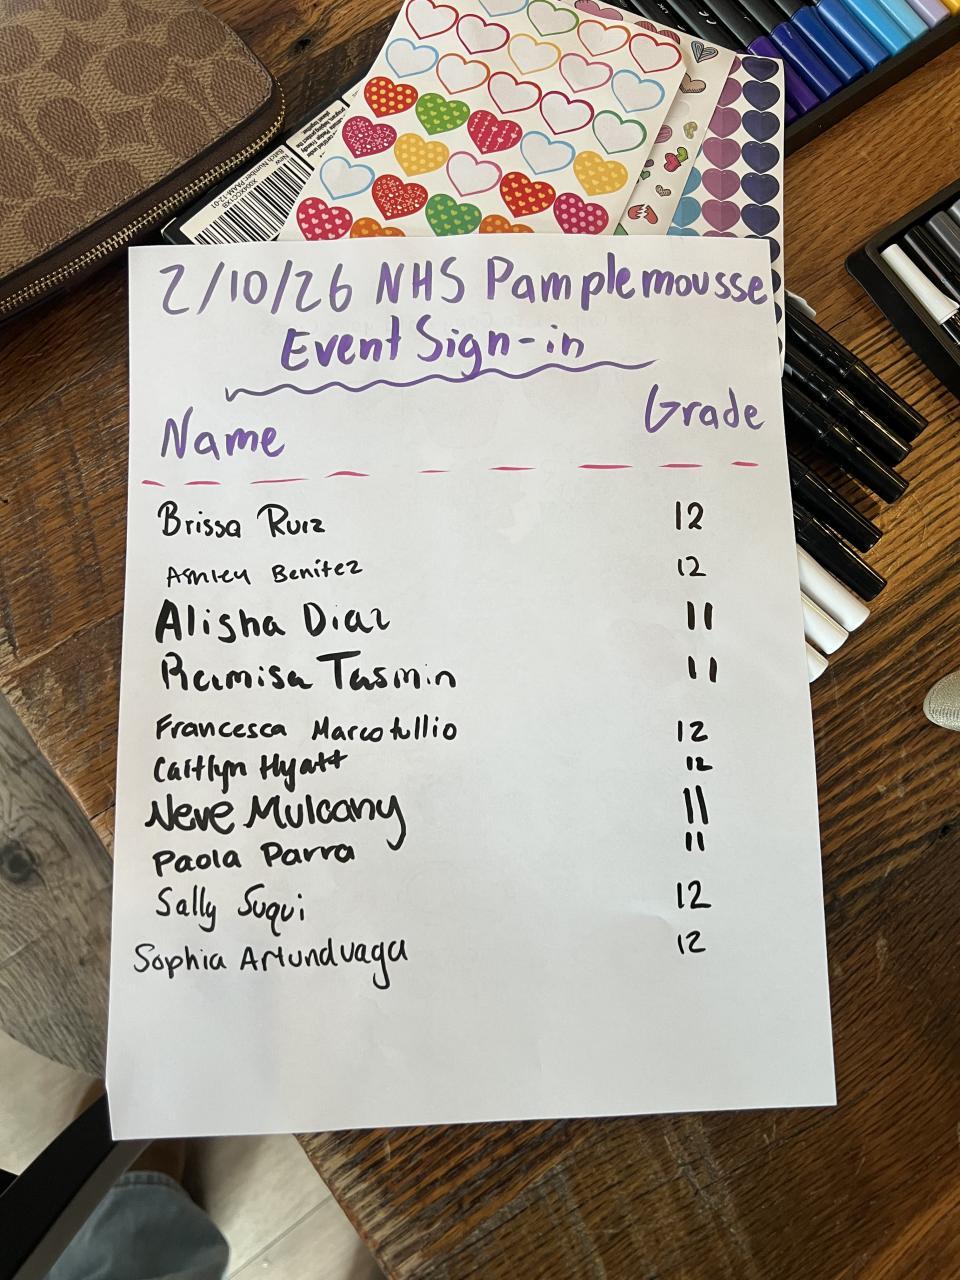 2/10/26 NHS Pamplemousse
Event Sign-in
Name Grade
Brissa Ruiz 12
Ashley Benitez 12
Alisha Diaz 11
Ramisa Tasmin 11
Francesca Marcotullio 12
Caitlyn Hyatt 12
Neve Mulcany 11
Paola Parra 11
Sally Suqui 12
Sophia Artunduaga 12
New
Batch Number